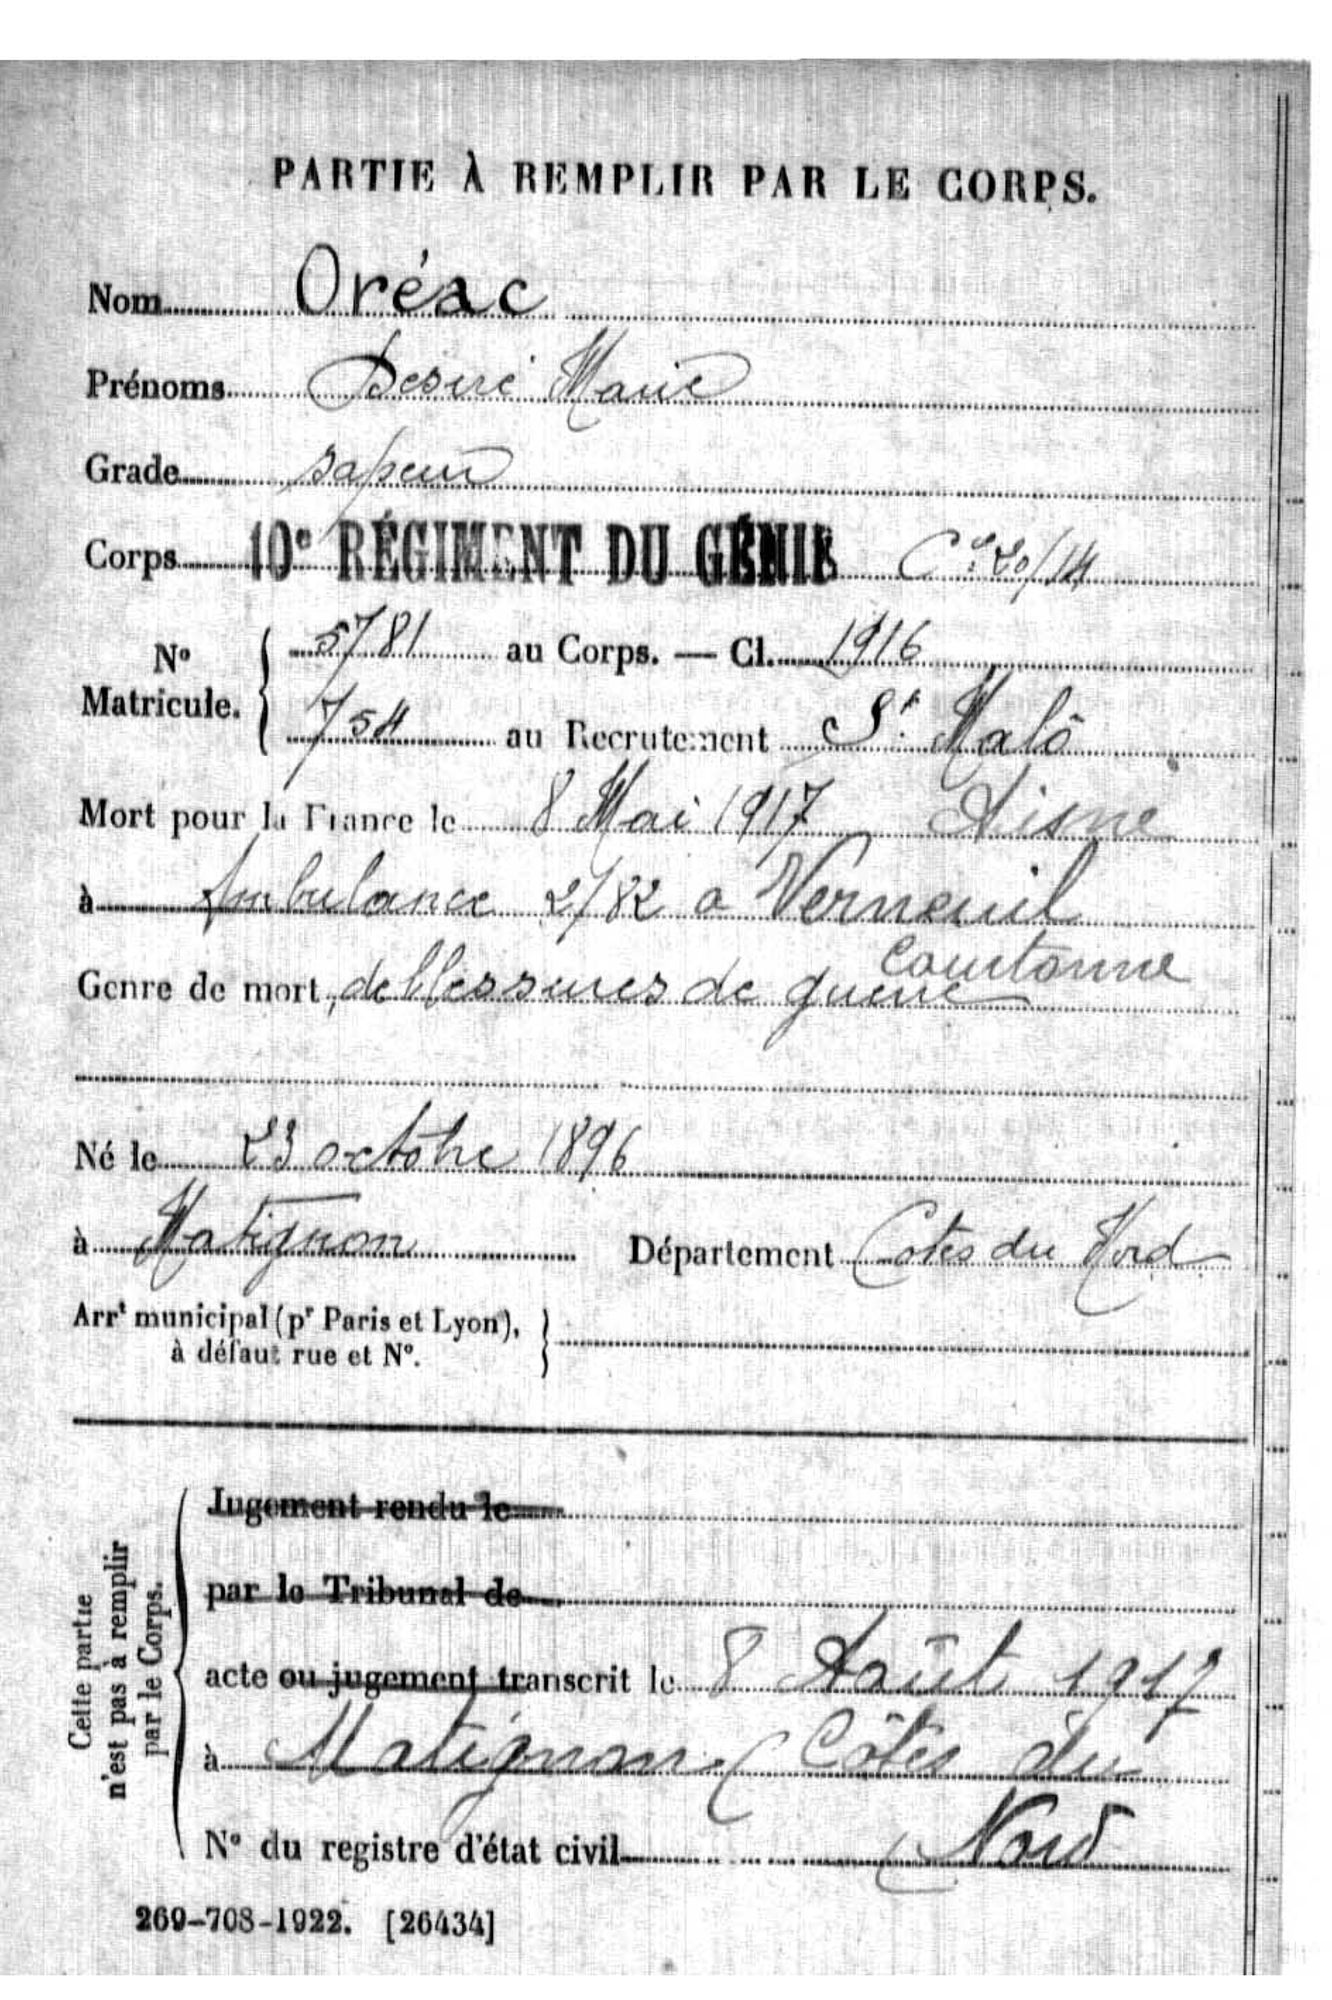 PARTIE À REMPLIR PAR LE CORPS.
Nom Oréac
Prénoms Désiré Marie
Grade sapeur
Corps 10e RÉGIMENT DU GÉNIE Cie 20/14
No Matricule. { 5781 au Corps. — Cl. 1916
754 au Recrutement St. Malô
Mort pour la France le 8 Mai 1917 Aisne
à Ambulance 2/82 a Verneuil
Courtonne
Genre de mort de blessures de guerre
Né le 23 octobre 1896
à Matignon Département Côtes du Nord
Arrt municipal (pr Paris et Lyon),
à défaut rue et No.
Cette partie
n'est pas à remplir
par le Corps.
Jugement rendu le
par le Tribunal de
acte ou jugement transcrit le 8 Août 1917
à Matignon (Côtes du
No du registre d'état civil Nord
269-708-1922. [26434]